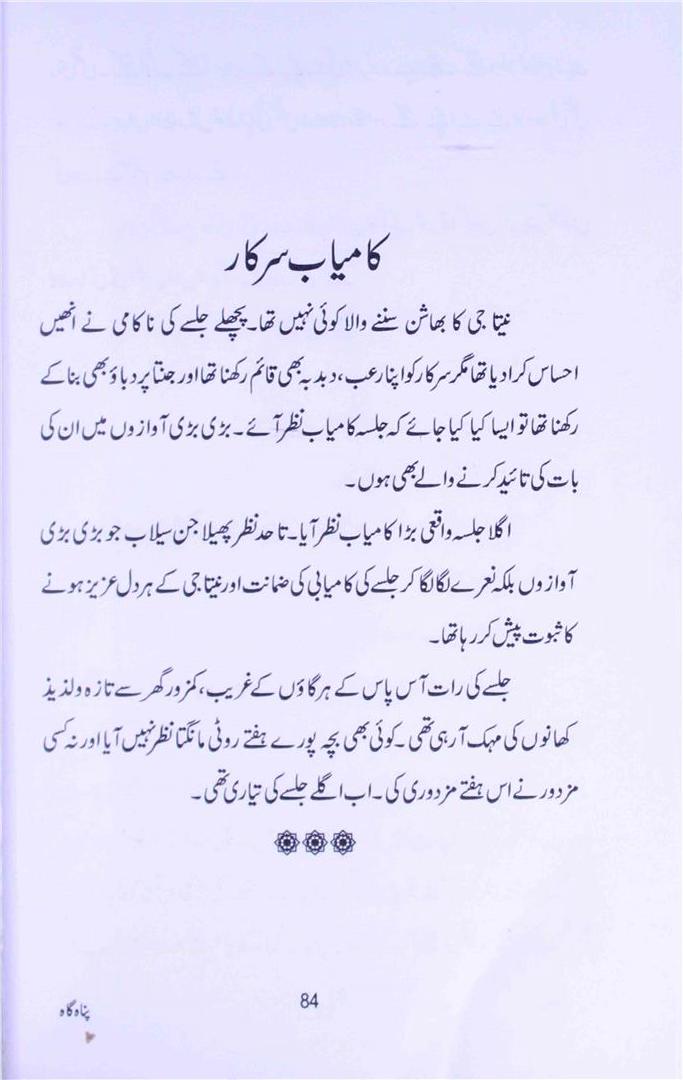 کامیاب سرکار
نیتا جی کا بھاشن سننے والا کوئی نہیں تھا۔ پچھلے جلسے کی ناکامی نے انھیں
احساس کرا دیا تھا مگر سرکار کو اپنا رعب، دبدبہ بھی قائم رکھنا تھا اور جنتا پر دباؤ بھی بنا کے
رکھنا تھا تو ایسا کیا کیا جائے کہ جلسہ کامیاب نظر آئے۔ بڑی بڑی آوازوں میں ان کی
بات کی تائید کرنے والے بھی ہوں۔
اگلا جلسہ واقعی بڑا کامیاب نظر آیا۔ تاحد نظر پھیلا جن سیلاب جو بڑی بڑی
آوازوں بلکہ نعرے لگا لگا کر جلسے کی کامیابی کی ضمانت اور نیتا جی کے ہر دل عزیز ہونے
کا ثبوت پیش کر رہا تھا۔
جلسے کی رات آس پاس کے ہر گاؤں کے غریب، کمزور گھر سے تازہ ولذیذ
کھانوں کی مہک آرہی تھی۔ کوئی بھی بچہ پورے ہفتے روٹی مانگتا نظر نہیں آیا اور نہ کسی
مزدور نے اس ہفتے مزدوری کی۔ اب اگلے جلسے کی تیاری تھی۔
84
پناہ گاہ